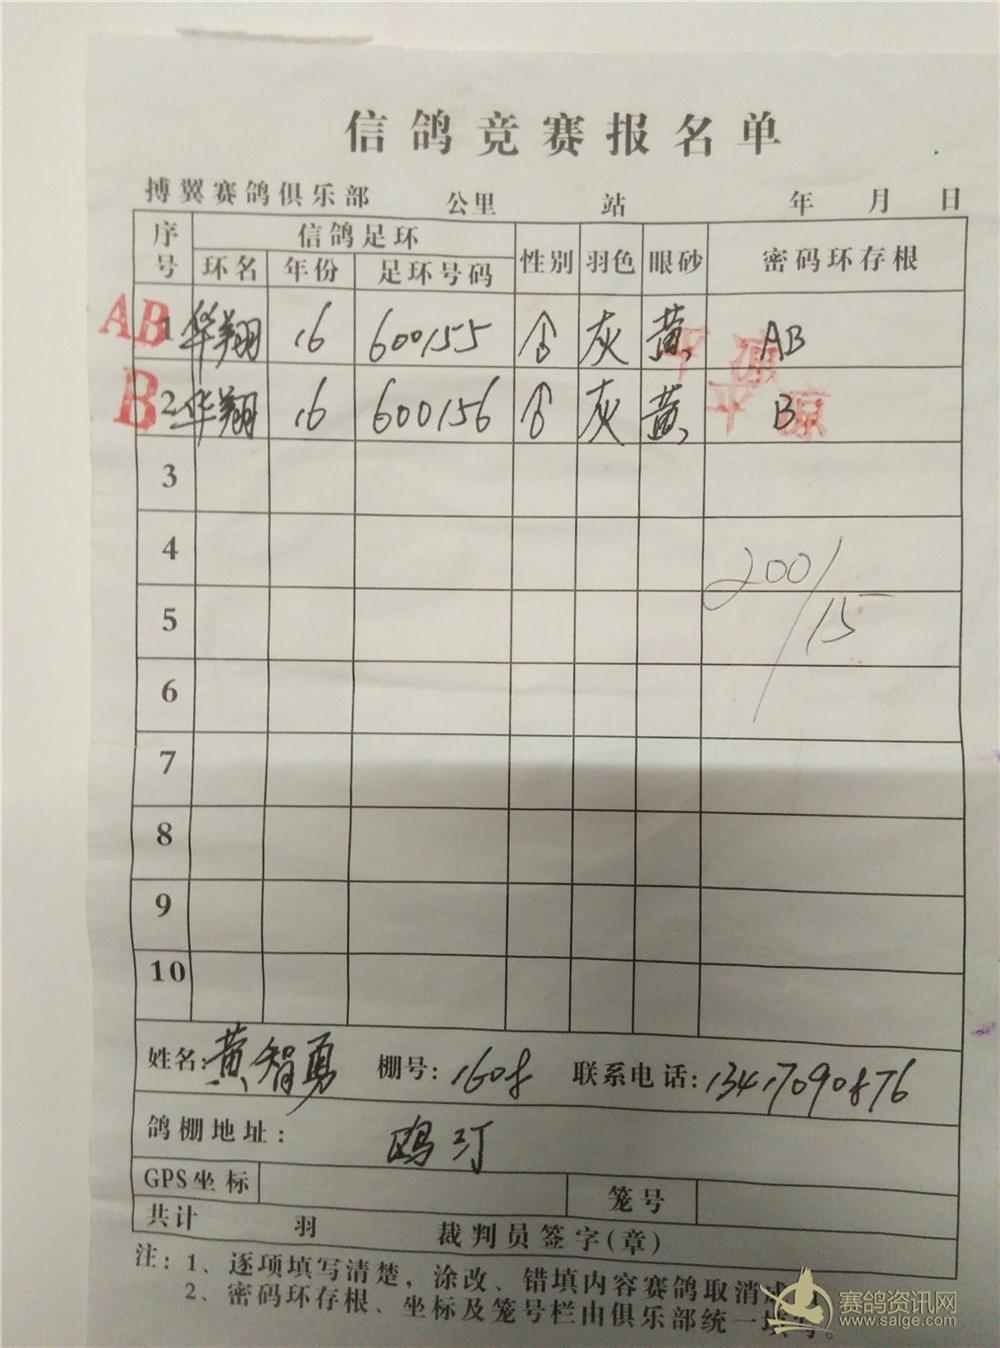 信鸽竞赛报名单
搏翼赛鸽俱乐部 公里 站 年 月 日
序号 信鸽足环 性别 羽色 眼砂 密码环存根
环名 年份 足环号码
AB 1 华翔 16 600155 灰 黄 AB 平凉
B 2 华翔 16 600156 灰 黄 B 平凉
3
4
200/15
5
6
7
8
9
10
姓名: 黄智勇 棚号: 1608 联系电话: 13417090876
鸽棚地址: 鸥汀
GPS坐标 笼号
共计 羽 裁判员签字(章)
注: 1、逐项填写清楚，涂改、错填内容赛鸽取消成
2、密码环存根、坐标及笼号栏由俱乐部统一填写。
赛鸽资讯网
www.saige.com